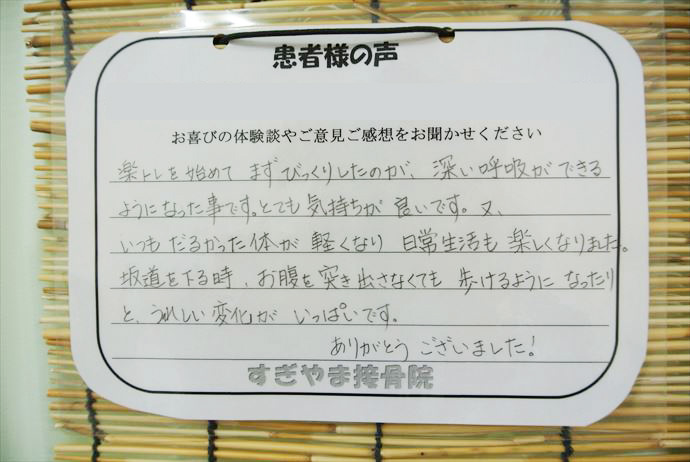 患者様の声
お喜びの体験談やご意見ご感想をお聞かせください
楽トレを始めて まずびっくりしたのが、深い呼吸ができる
ようになった事です。とても気持ちが良いです。又、
いつもだるかった体が軽くなり 日常生活も楽しくなりました。
坂道を下る時、お腹を突き出さなくても 歩けるようになったり
と、うれしい変化が いっぱいです。
ありがとう ございました!
すぎやま接骨院